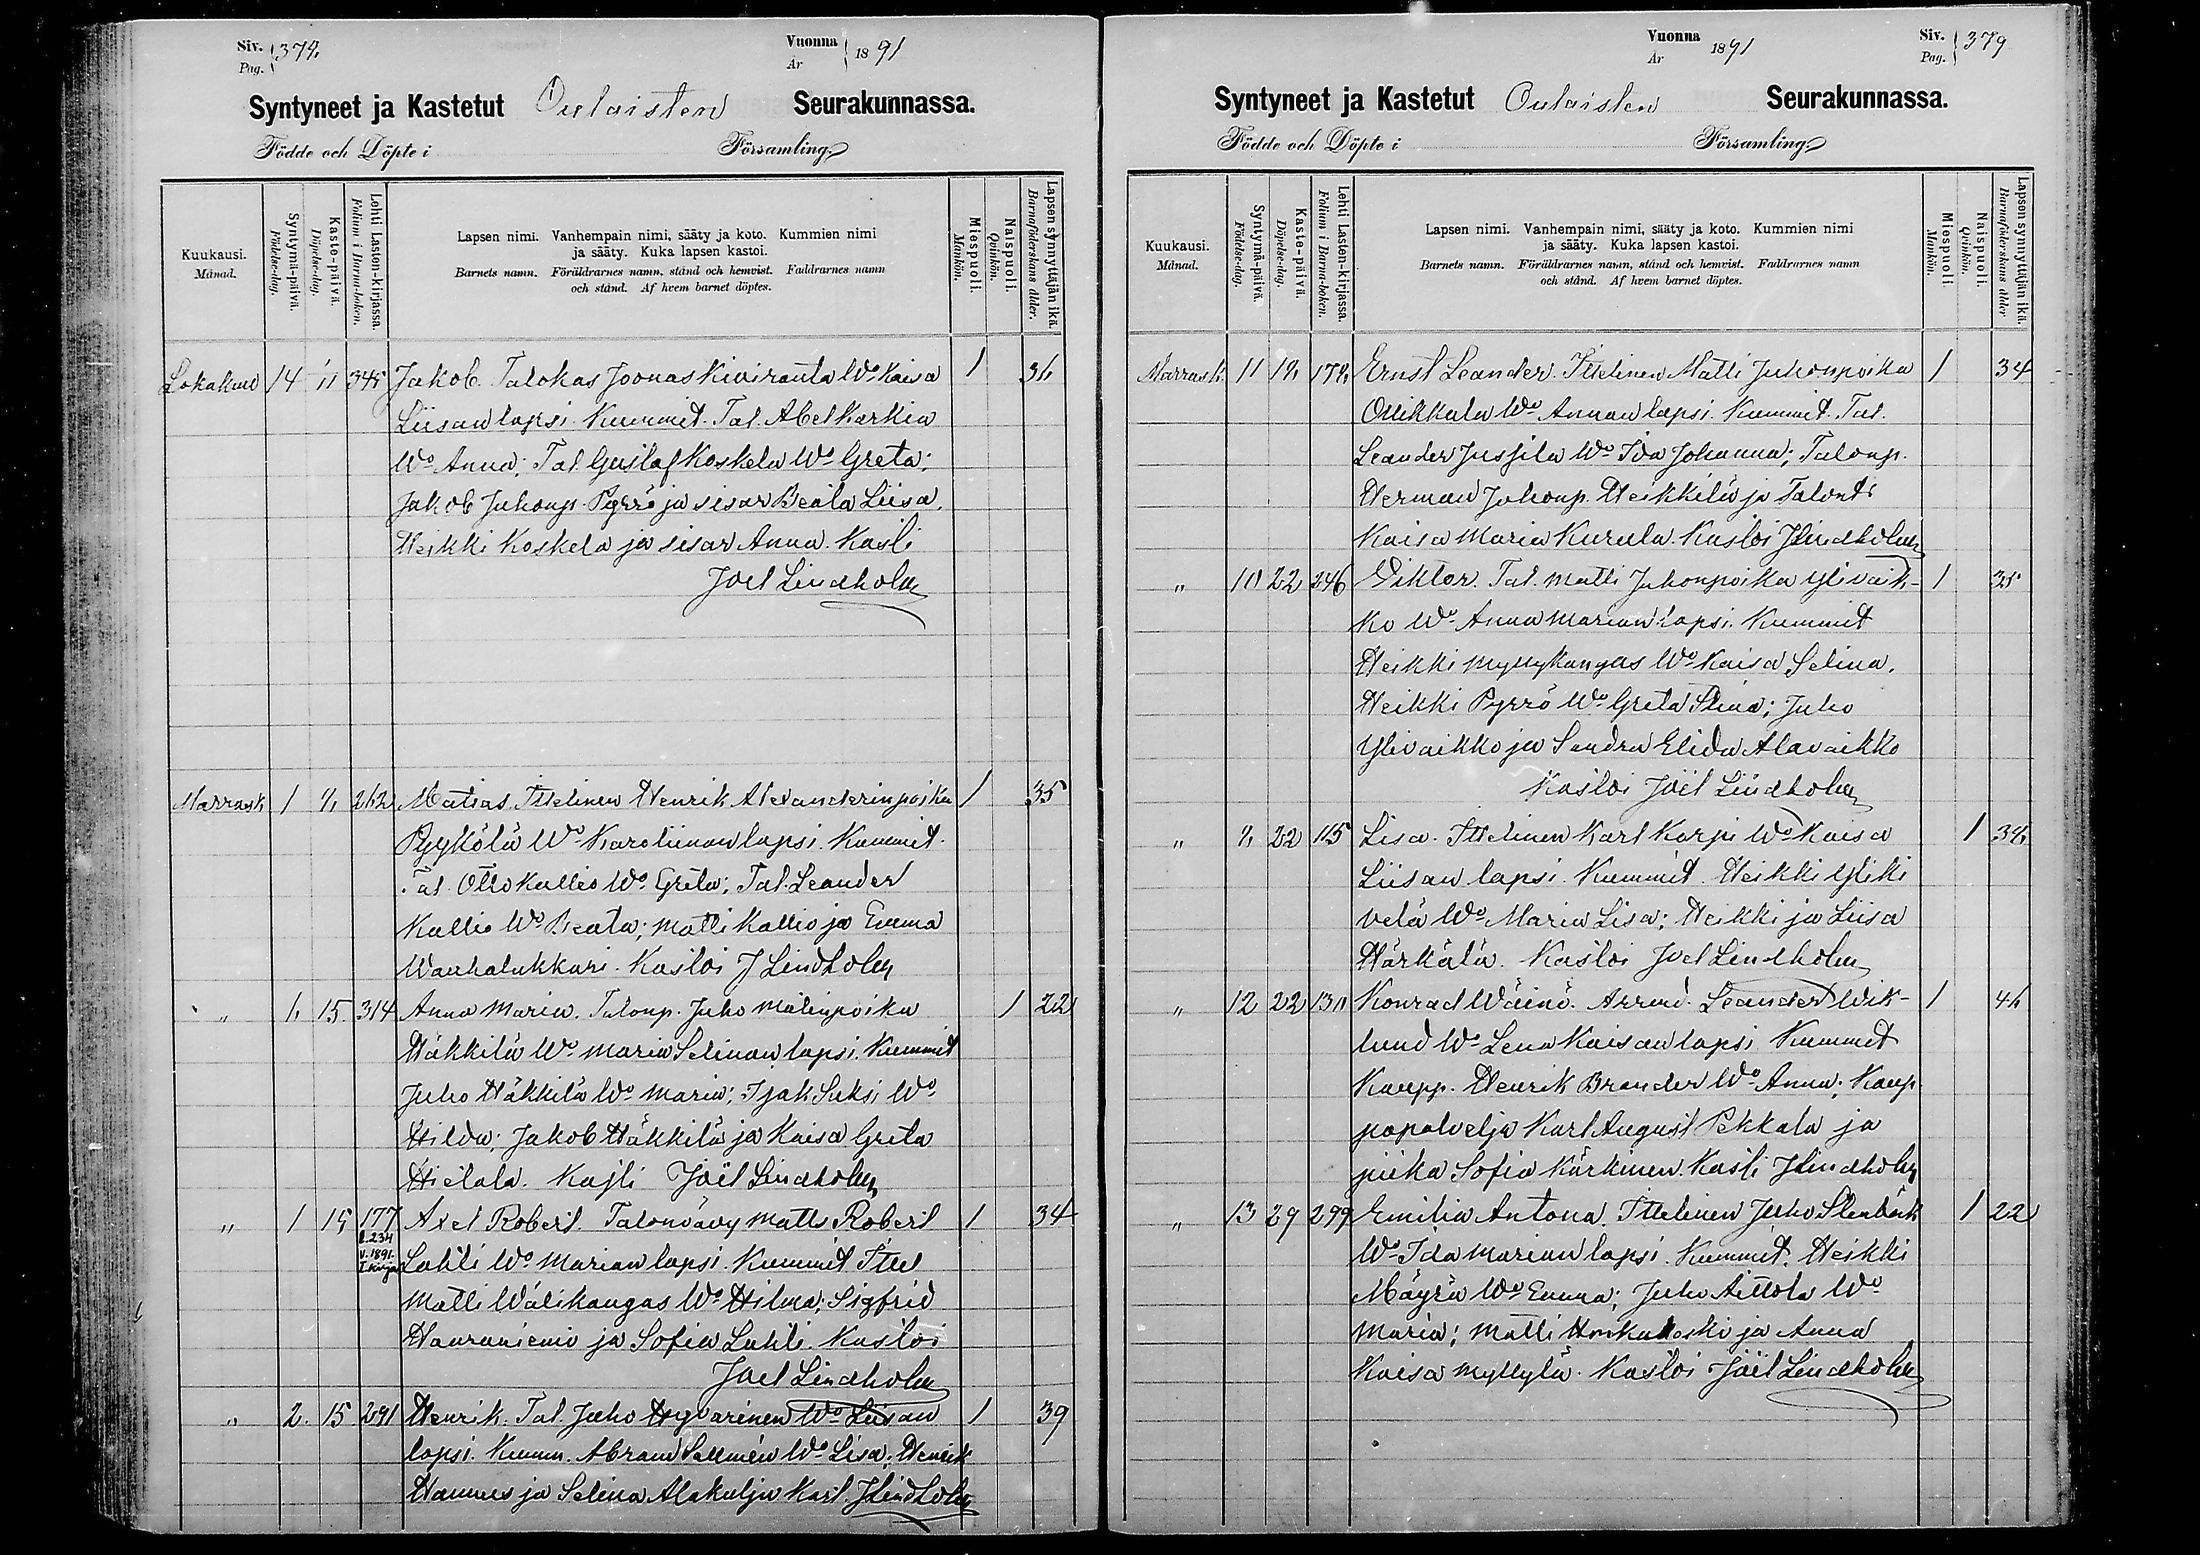 Siv. Pag. 378
Vuonna År 1891
Syntyneet ja Kastetut Oulaisten Seurakunnassa.
Födde och Döpte i Församling
Kuukausi. Månad.
Syntymä-päivä. Födelse-dag.
Kaste-päivä. Döpelse-dag.
Lehti Lasten-kirjassa. Folium i Barna-boken.
Lapsen nimi. Vanhempain nimi, sääty ja koto. Kummien nimi
ja sääty. Kuka lapsen kastoi.
Barnets namn. Föräldrarnes namn, stånd och hemvist. Faddrarnes namn
och stånd. Af hvem barnet döptes.
Miespuoli. Mankön.
Naispuoli. Qvinkön.
Lapsen synnyttäjän ikä. Barnaföderskans ålder.
Lokakuu 14 11 345 Jakob. Talokas Joonas Kiviranta Wo Kaisa 1 36
Liisan lapsi. Kummit. Tal. Abel Karkia
Wo Anna; Tal Gustaf Koskela Wo Greta;
Jakob Juhonp. Pyrrö ja sisar Beata Liisa.
Heikki Koskela ja sisar Anna. Kasti
Joel Lindholm
Marrask 1 8 262 Matias Ittelinen Henrik Alexanderinpoika 1 35
Pyykölä Wo Karoliinan lapsi. Kummit.
Tal. Otto Kallio Wo Greta; Tal. Leander
Kallio Wo Beata; Matti Kallio ja Emma
Wanhalukkari. Kastoi J Lindholm
" 6 15 314 Anna Maria. Talonp. Juho Matinpoika 1 22
Häkkilä Wo Maria Selinan lapsi. Kummit
Juho Häkkilä Wo Maria; Isak Suksi Wo
Hilda; Jakob Häkkilä ja Kaisa Greta
Hietala. Kasti Joel Lindholm
" 1 15 177 Axel Robert. Talonvävy Matts Robert 1 34
s.234 v.1891. I kirja Lahti Wo Marian lapsi. Kummit Ittel
Matti Wälikangas Wo Hilma; Sigfrid
Hauraniemi ja Sofia Lahti. Kastoi
Joel Lindholm
" 2 15 291 Henrik. Tal. Juho Hyvärinen Wo Liisan 1 39
lapsi. Kumm. Abram Sallmén Wo Lisa; Henrik
Hannus ja Selina Alakulju Kast. J Lindholm
Vuonna År 1891
Siv. Pag. 379
Syntyneet ja Kastetut Oulaisten Seurakunnassa.
Födde och Döpte i Församling
Kuukausi. Månad.
Syntymä-päivä. Födelse-dag.
Kaste-päivä. Döpelse-dag.
Lehti Lasten-kirjassa. Folium i Barna-boken.
Lapsen nimi. Vanhempain nimi, sääty ja koto. Kummien nimi
ja sääty. Kuka lapsen kastoi.
Barnets namn. Föräldrarnes namn, stånd och hemvist. Faddrarnes namn
och stånd. Af hvem barnet döptes.
Miespuoli. Mankön.
Naispuoli. Qvinkön.
Lapsen synnyttäjän ikä. Barnaföderskans ålder
Marrask. 11 18 178 Ernst Leander. Ittelinen Matti Juhonpoika 1 34
Ollikkala Wo Annan lapsi. Kummit. Tal.
Leander Jussila Wo Ida Johanna; Talonp.
Herman Juhonp. Heikkilä ja Talont.
Kaisa Maria Kurula. Kastoi J Lindholm
" 10 22 246 Viktor. Tal. Matti Juhonpoika Ylivaik- 1 35
ko Wo Anna Marian lapsi. Kummit
Heikki Myllykangas Wo Kaisa Selina.
Heikki Pyrrö Wo Greta Stina; Juho
Ylivaikko ja Sandra Elida Alavaikko
Kastoi Joel Lindholm
" 8 22 115 Lisa. Ittelinen Karl Karpi Wo Kaisa 1 38
Liisan lapsi. Kummit. Heikki Yliki
velä Wo Maria Lisa; Heikki ja Liisa
Härkälä. Kastoi Joel Lindholm
" 12 22 130 Konrad Wäinö. Arrend. Leander Wik- 1 46
lund Wo Lena Kaisan lapsi. Kummit
Kaupp. Henrik Brander Wo Anna; Kaup
papalvelja Karl August Pekkala ja
piika Sofia Kärkinen. Kasti J Lindholm
" 13 29 299 Emilia Antona. Ittelinen Juho Stenbäck 1 22
Wo Ida Marian lapsi. Kummit. Heikki
Mäyrä Wo Emma; Juho Aittola Wo
Maria; Matti Honkakoski ja Anna
Kaisa Myllylä. Kastoi Joel Lindholm